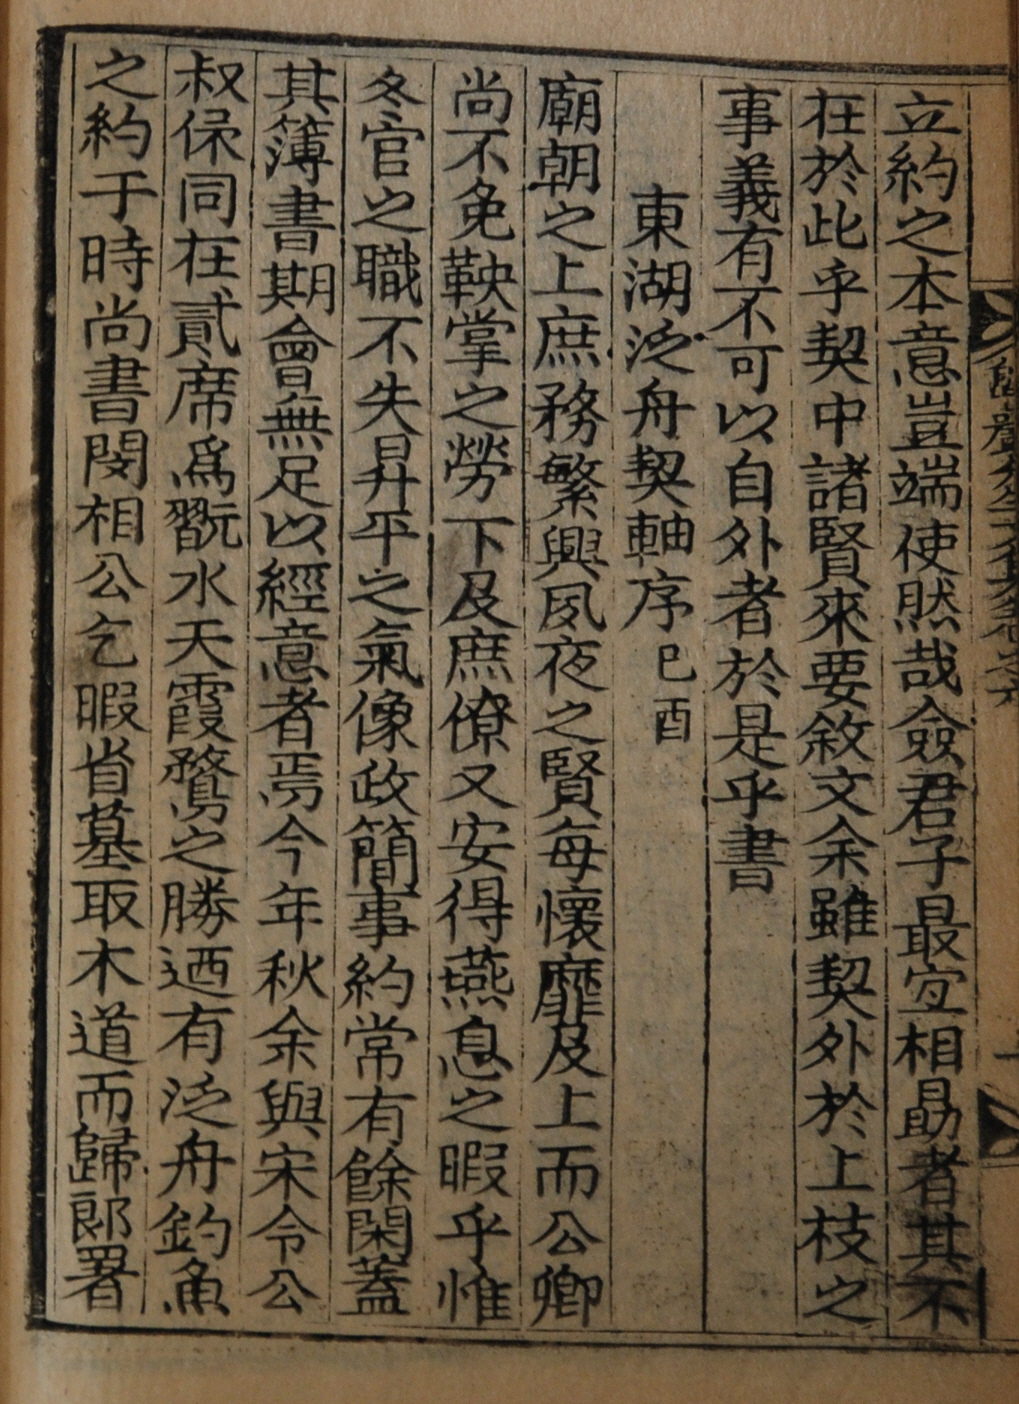 立約之本意豈端使然哉僉君子最宜相勗者其不
在於此乎契中諸賢來要敘文余雖契外於上枝之
事義有不可以自外者於是乎書
東湖泛舟契軸序 己酉
廟朝之上庶務繁興夙夜之賢每懷靡及上而公卿
尚不免鞅掌之勞下及庶僚又安得燕息之暇乎惟
冬官之職不失昇平之氣像政簡事約常有餘閑蓋
其簿書期會無足以經意者焉今年秋余與宋令公
叔保同在貳席爲翫水天霞鶩之勝迺有泛舟釣魚
之約于時尚書閔相公乞暇省墓取木道而歸郞署